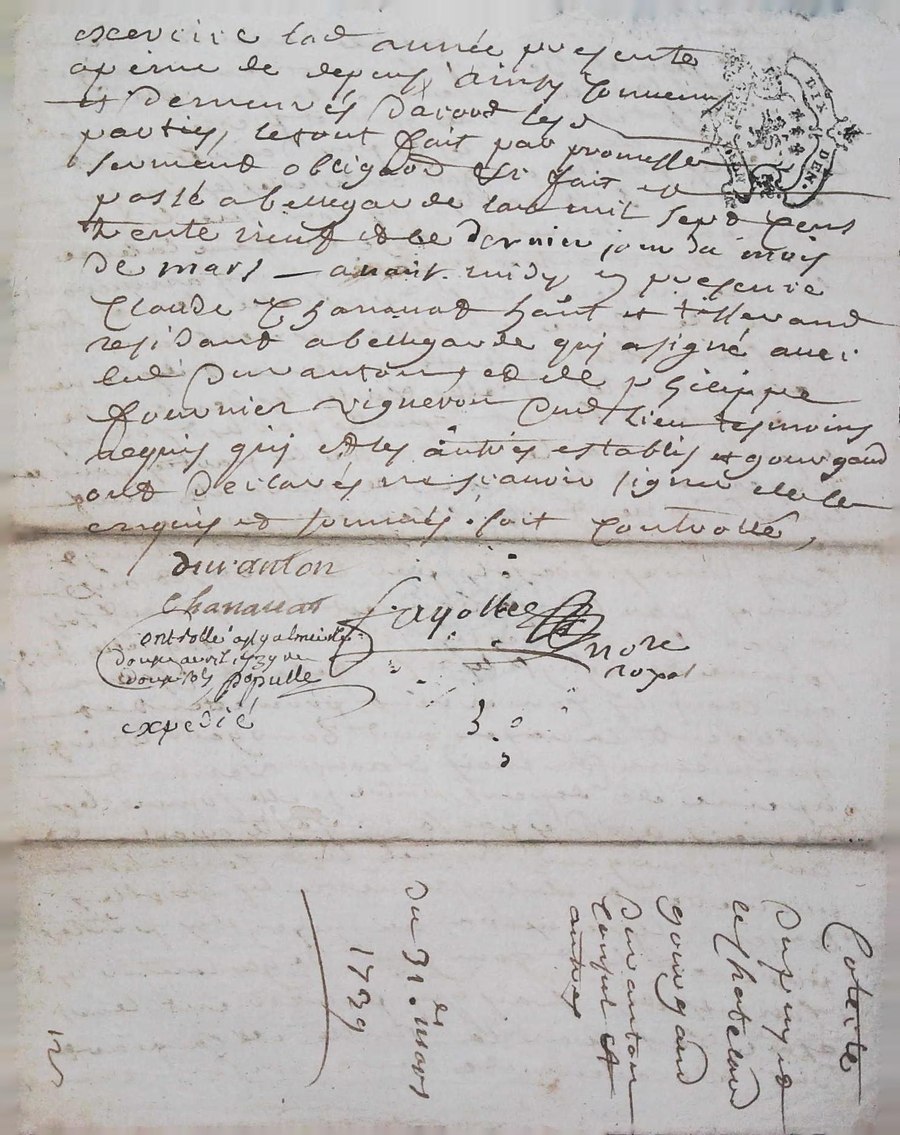 excercice lad année presente
apeine de depens ainsy convenu
et demeurés dacord lesd
parties, letout fait par promesse
serment obligaon &c fait et
passé abellegarde lan mil sept cens
trente neuf et le dernier jour du mois
de mars avant midy en presence
Claude Chanauat hant et tisserand
residant abellegarde qui asigné avec
led Duranton, et de philippe
fournier vigneron dud lieu tesmoins
requis qui et les autres establis et gourgaud
ont declarés nescavoir signer de ce
enquis et sommés. soit controllé,
duranton
Chanauat
Fayolle nore
royal
controllé
douze avril 1739 re
douze sols
expedié
DIX
DEN.
Coterte
Dupuy et
lechatelard
gourgaud
Duranton
consul et
autres
du 31e mars
1739
12